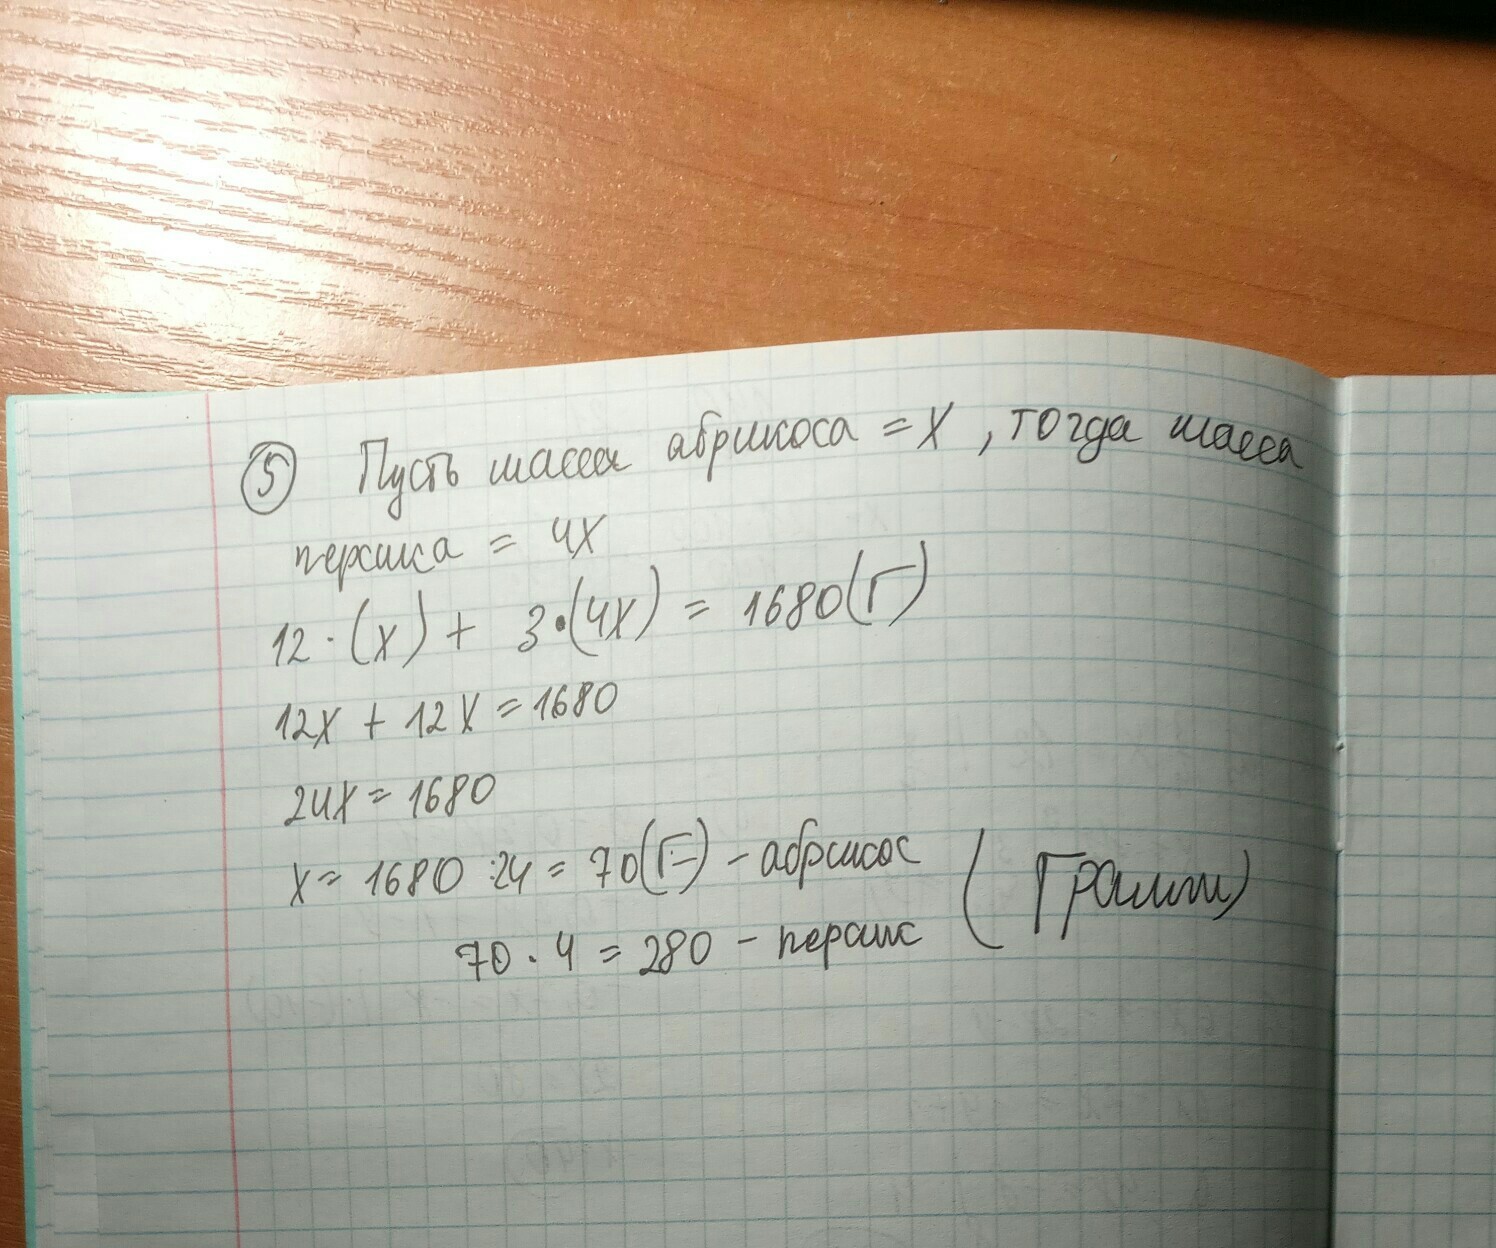 5 Пусть масса абрикоса = X, тогда масса
персика = 4X
12 · (x) + 3 · (4X) = 1680 (Г)
12X + 12X = 1680
24X = 1680
X = 1680 : 24 = 70 (Г) - абрикос
70 · 4 = 280 - персик (Грамм)